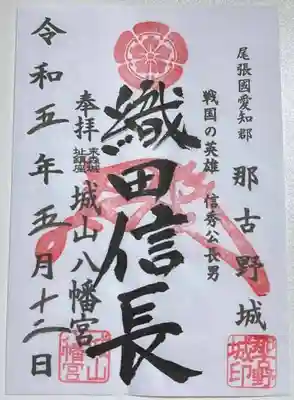 尾張國愛知郡
那古野城
戦国の英雄 信秀公長男
織田信長
奉拝
末森城
址鎮座
城山八幡宮
令和五年五月十二日
那古野
城印
城山
八幡宮